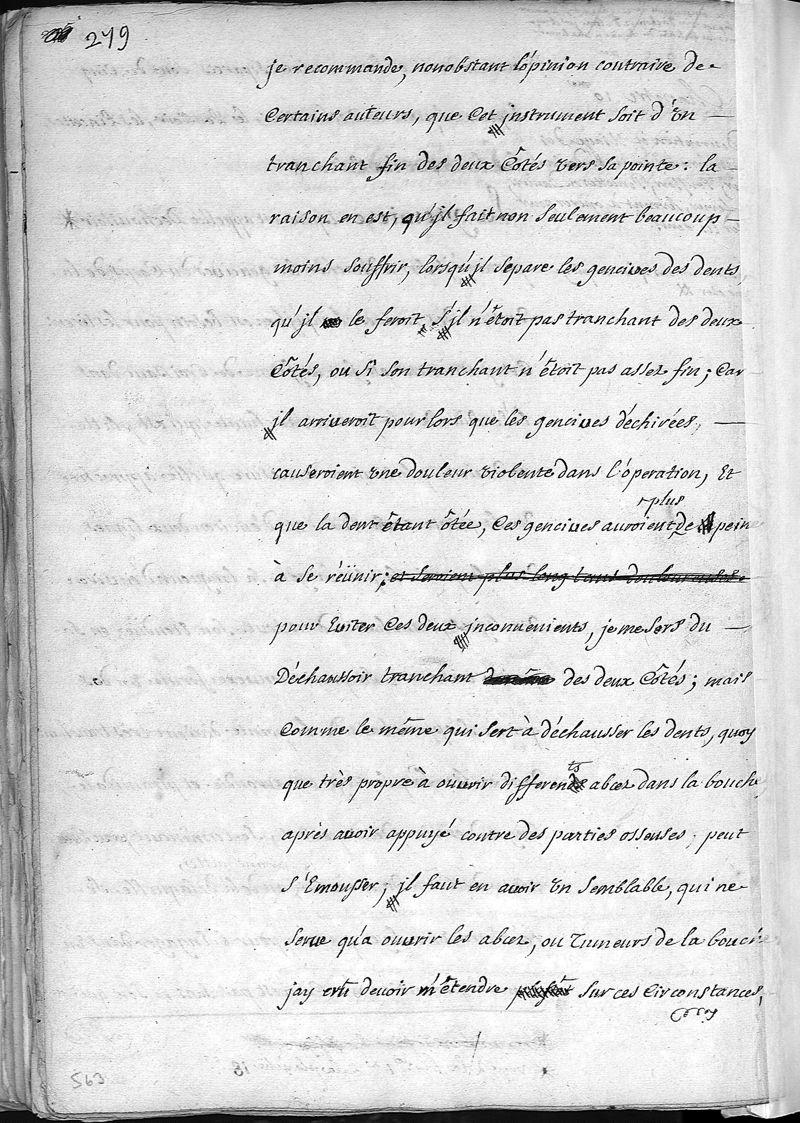 279
je recommande, nonobstant l'opinion contraire de
Certains auteurs, que Cet jnstrument soit d'un
tranchant fin des deux Côtés vers sa pointe: la
raison en est, qu'jl fait non seulement beaucoup
moins souffrir, lorsqu'jl separe les gencives des dents,
qu'jl le feroit, S'jl n'étoit pas tranchant des deux
Côtés, ou si son tranchant n'étoit pas assez fin; Car
jl arriveroit pour lors que les gencives déchirées,
causeroient une douleur violente dans l'operation, Et
plus
que la dent étant ôtée, Ces gencives auroient de peine
à se réünir; et seroient plus long tems douloureuses
pour Eviter Ces deux jnconvenients, je me sers du
Déchaussoir tranchant des deux Côtés; mais
Comme le même qui sert à déchausser les dents, quoy
que très propre à ouvrir differents abcez dans la bouche
aprés avoir appuyé contre des parties osseuses, peut
s'Emousser; jl faut en avoir un semblable, qui ne
serve qu'a ouvrir les abcez, ou Tumeurs de la bouche
jay crû devoir m'étendre sur ces Circonstances,
563